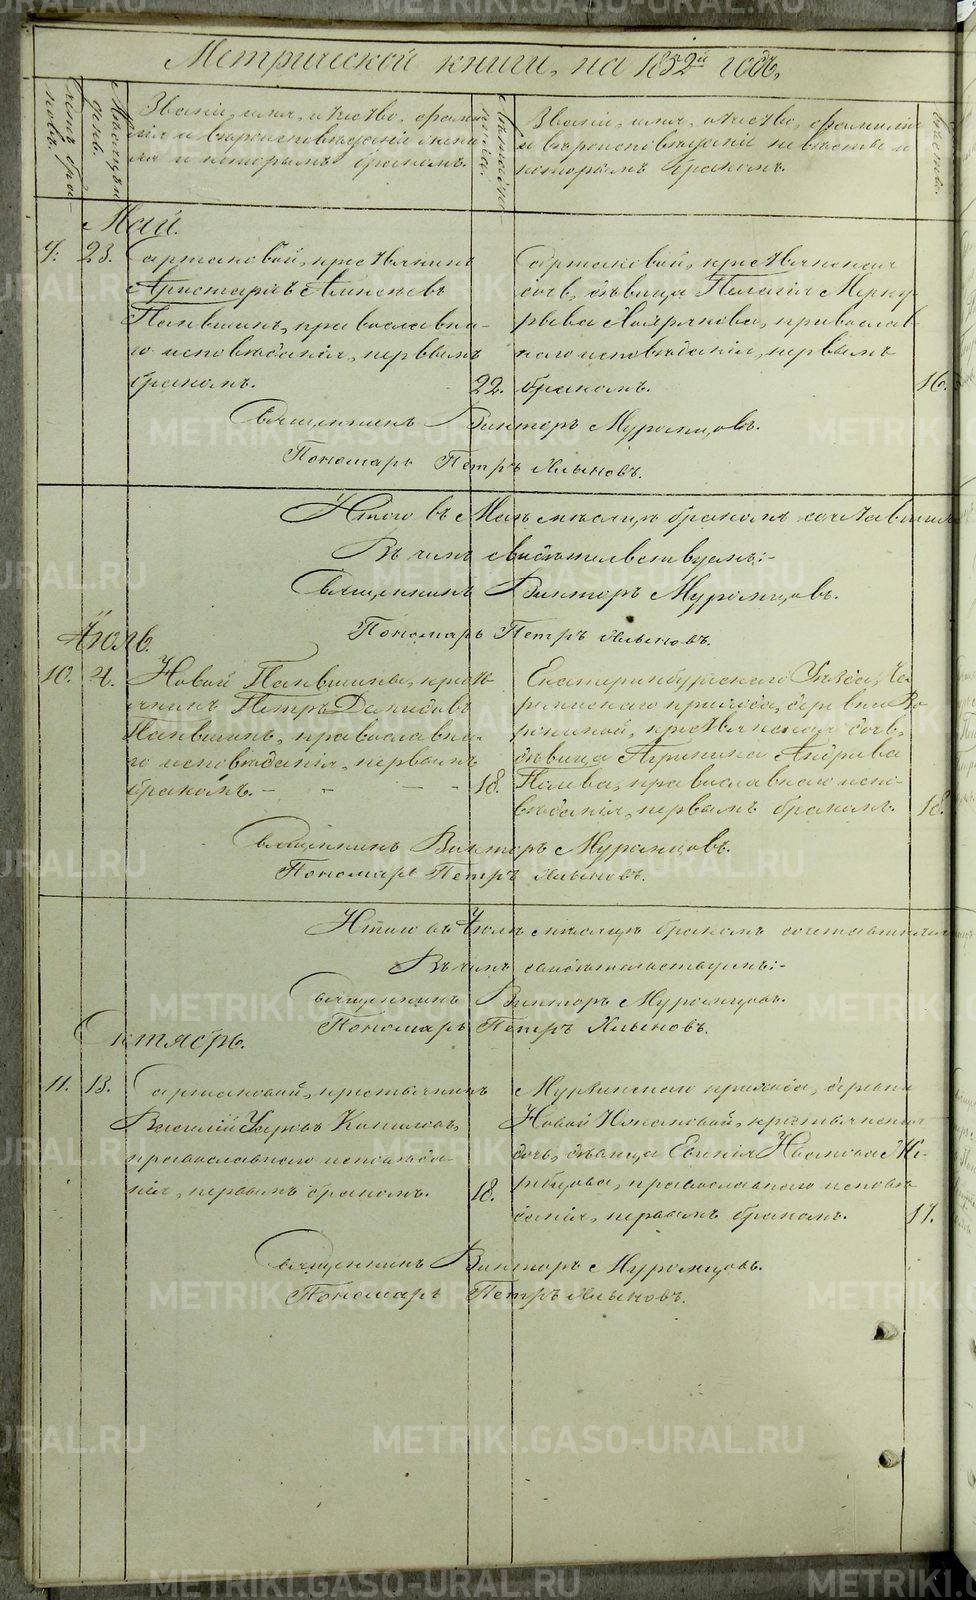 Метрической книги, на 1852й годъ,
Счетъ браковъ.
Месяцъ и день.
Званіе, имя, отчество, фамилія и вероисповѣданіе жениха и которымъ бракомъ.
лѣта
Званіе, имя, отчество, фамилія и вѣроисповѣданіе невѣсты и которымъ бракомъ.
Май.
23. Сартаковой, крестьянинъ
Аристархъ Алексѣевъ
православна-
го исповѣданія, первымъ
бракомъ. 22.
Сартаковой, крестьянская
дочь, дѣвица Пелагія Мерку-
рьева православ
наго исповѣданія, первымъ
бракомъ. 16.
Священникъ Викторъ Муромцовъ.
Пономарь Петръ Хлыновъ.
Итого въ Маѣ мѣсяцѣ бракомъ сочетавшихъ
Въ чемъ свидѣтельствуемъ:-
Священникъ Викторъ Муромцовъ.
Пономарь Петръ Хлыновъ.
Іюль.
10. 4. Новой крестья
нинъ Петръ Демидовъ
православна-
го исповѣданія, первымъ
бракомъ. - - - - 18.
Екатеринбургскаго Уѣзда,
прихода, деревни
крестьянская дочь,
дѣвица Агрипина Андреева
православнаго испо-
вѣданія, первымъ бракомъ. 18.
Священникъ Викторъ Муромцовъ.
Пономарь Петръ Хлыновъ.
Итого въ Іюлѣ мѣсяцѣ бракомъ сочетавшихъ
Въ чемъ свидѣтельствуемъ:-
Священникъ Викторъ Муромцовъ.
Пономарь Петръ Хлыновъ.
Октябрь.
11. 13. Сартаковой, крестьянинъ
Василій Копыловъ,
православнаго исповѣда-
нія, первымъ бракомъ. 18.
прихода, деревни
Новой крестьянская
дочь, дѣвица Евгенія Иванова
православнаго исповѣ
данія, первымъ бракомъ. 17.
Священникъ Викторъ Муромцовъ.
Пономарь Петръ Хлыновъ.
METRIKI.GASO-URAL.RU